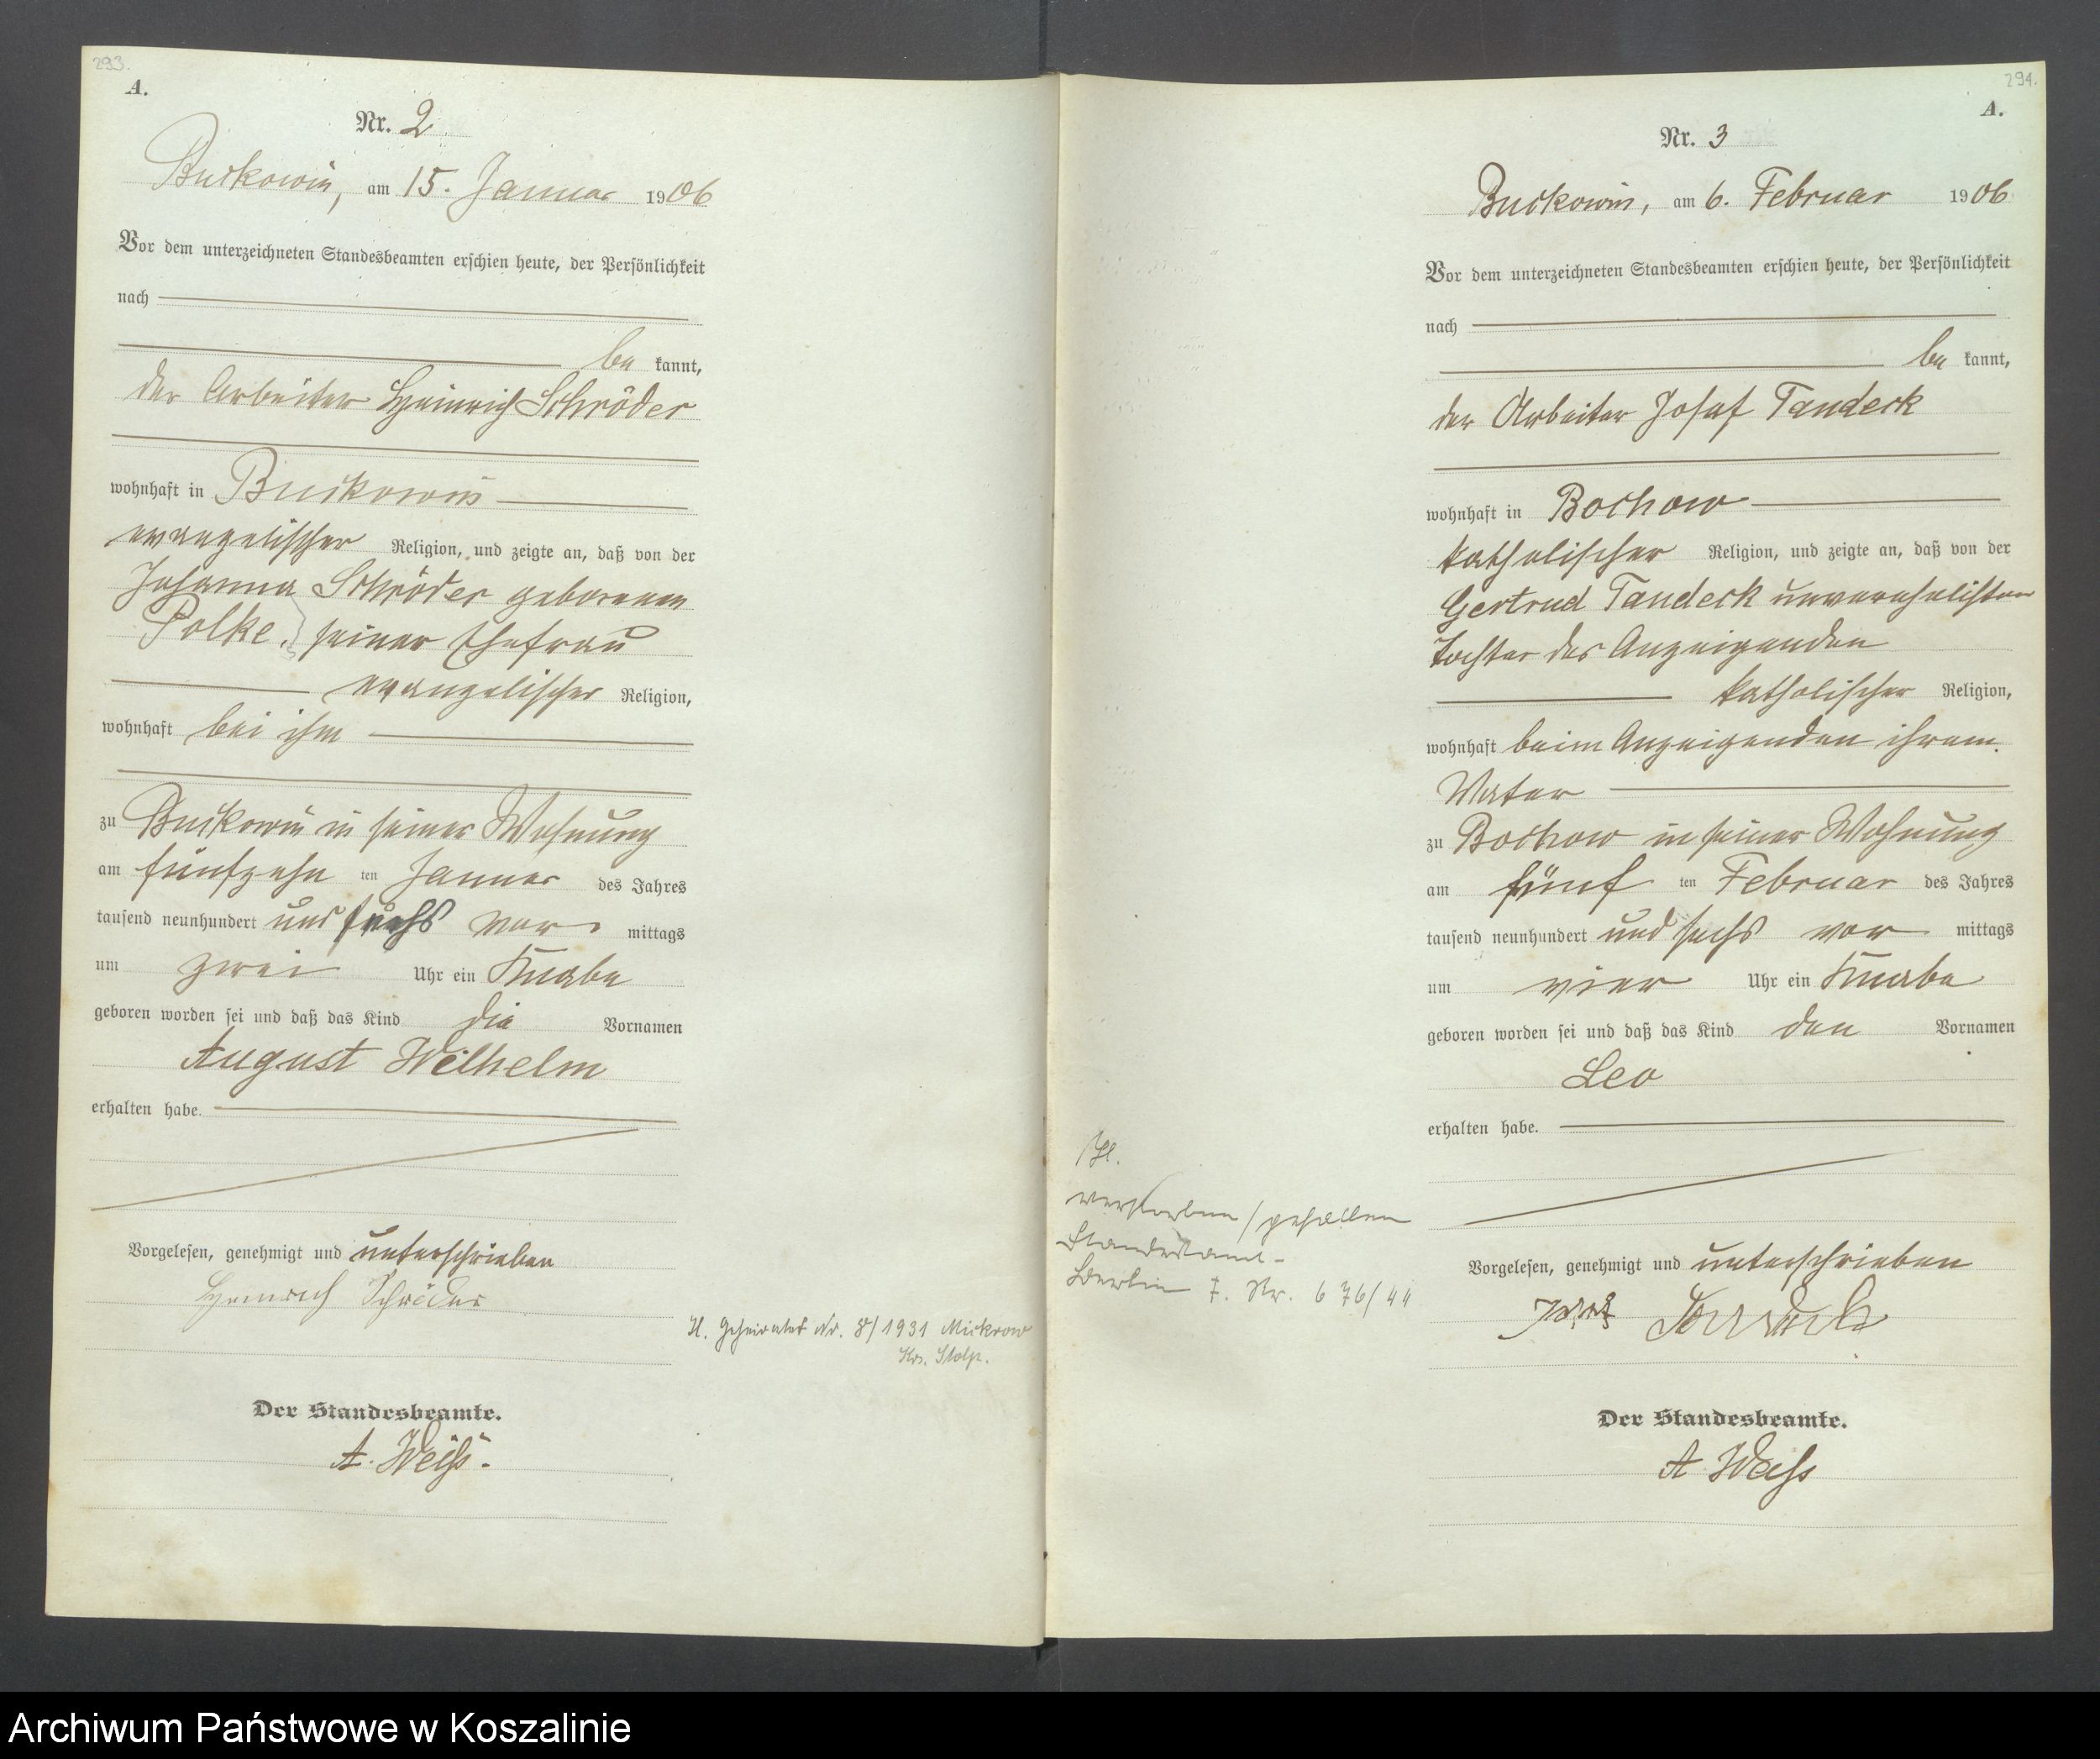 293.
A.
Nr. 2
Buckowin, am 15. Januar 1906
Vor dem unterzeichneten Standesbeamten erschien heute, der Persönlichkeit
nach
be kannt,
der Arbeiter Heinrich Schröder
wohnhaft in Buckowin
evangelischer Religion, und zeigte an, daß von der
Johanna Schröder geborenen
Polke, seiner Ehefrau
evangelischer Religion,
wohnhaft bei ihm
zu Buckowin in seiner Wohnung
am fünfzehn ten Januar des Jahres
tausend neunhundert und sechs vor mittags
um zwei Uhr ein Knabe
geboren worden sei und daß das Kind die Vornamen
August Wilhelm
erhalten habe.
Vorgelesen, genehmigt und unterschrieben
Heinrich Schröder
H. Geheiratet Nr. 8/1931 Mickrow
Krs. Stolp.
Der Standesbeamte.
A. Weiß.
294.
A.
Nr. 3
Buckowin, am 6. Februar 1906
Vor dem unterzeichneten Standesbeamten erschien heute, der Persönlichkeit
nach
be kannt,
der Arbeiter Josef Tandeck
wohnhaft in Bochow
katholischer Religion, und zeigte an, daß von der
Gertrud Tandeck unverehelichten
Tochter des Anzeigenden
katholischer Religion,
wohnhaft beim Anzeigenden ihrem
Vater
zu Bochow in seiner Wohnung
am fünf ten Februar des Jahres
tausend neunhundert und sechs vor mittags
um vier Uhr ein Knabe
geboren worden sei und daß das Kind den Vornamen
Leo
erhalten habe.
verstorben / gefallen
Standesamt
Berlin Nr. 676/44
Vorgelesen, genehmigt und unterschrieben
Der Standesbeamte.
A Weiß
Archiwum Państwowe w Koszalinie